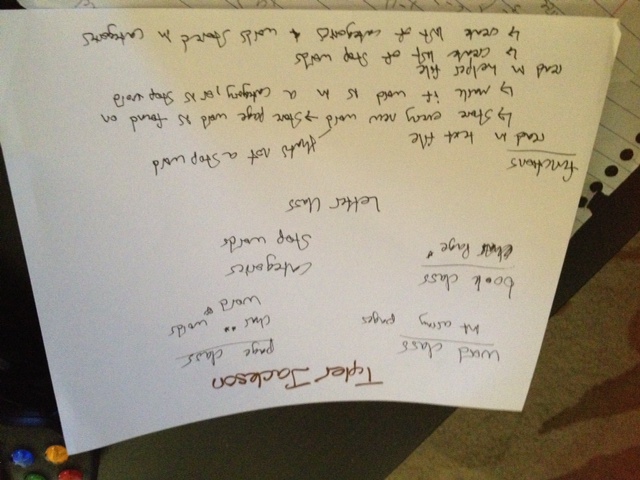 Tyler Jackson
word class
int array pages
page class
char ** words
word *
book class
Page *
categories
Stop words
Letter Class
functions
read in text file
that's not a stop word
↳ Store every new word → Store page word is found on
↳ mark if word is in a category, or is Stop word
read in helper file
↳ create list of Stop words
↳ create list of categories & words stored in categories